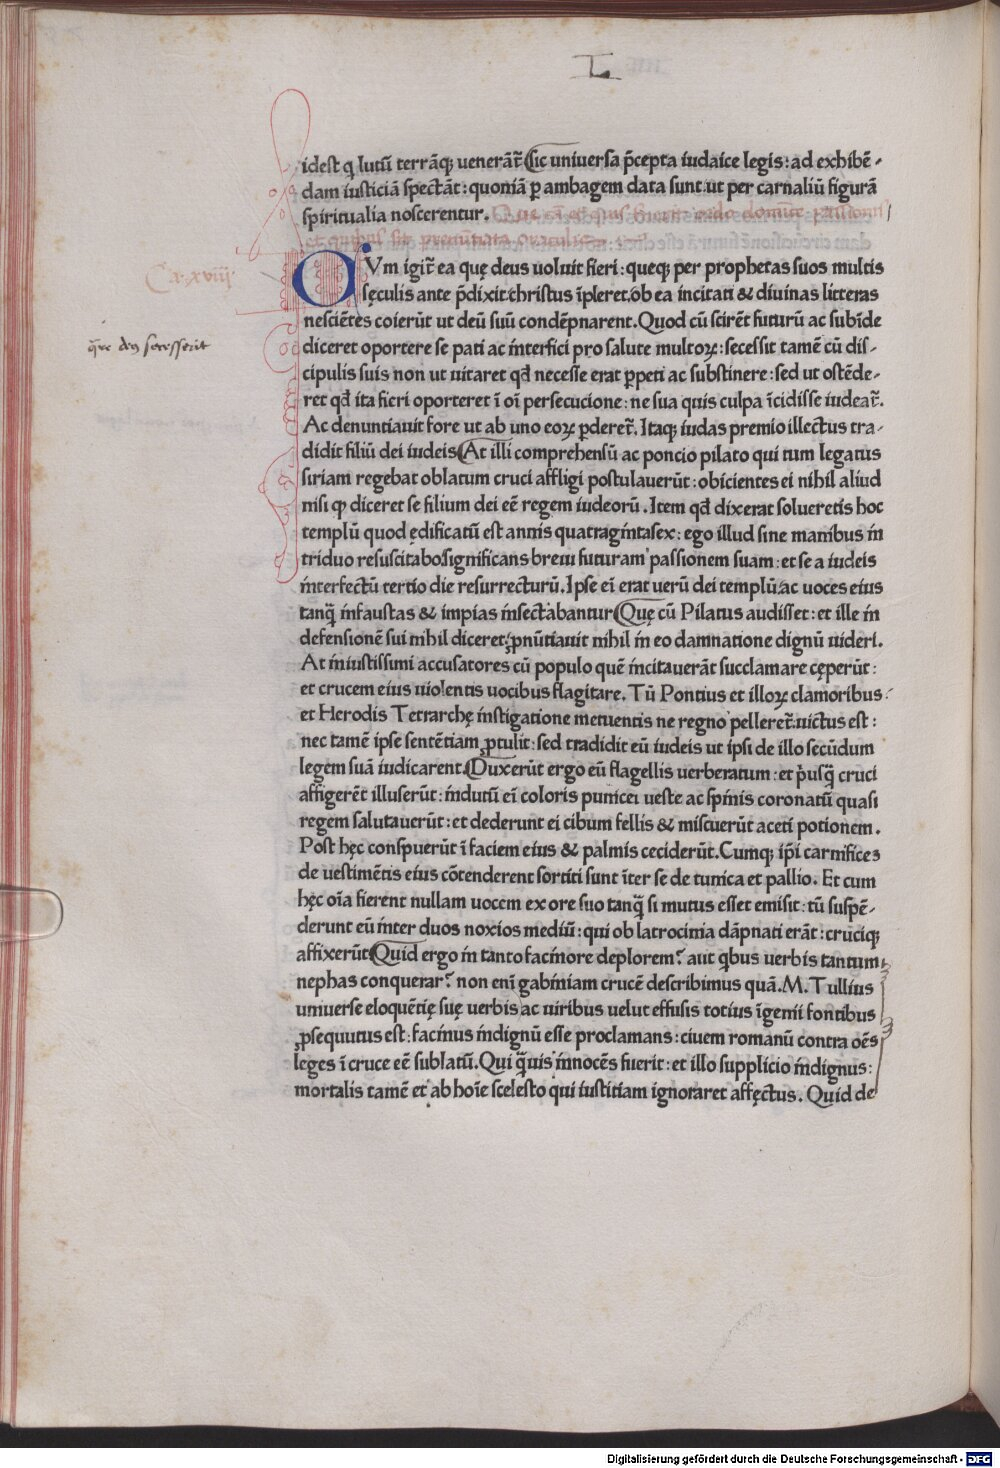 L
idest q lutū terrāq; uenerāt̄. Sic uniuersa p̄cepta iudaice legis: ad exhibē-
dam iusticiā spectāt: quoniā p ambagem data sunt: ut per carnaliū figurā
spiritualia noscerentur.
Ca. xviij
QVm igit̄ ea quę deus uoluit fieri: queq; per prophetas suos multis
sęculis ante p̄dixit: christus īpleret. ob ea incitati & diuinas litteras
nesciētes coierūt ut deū suū condēpnarent. Quod cū scirēt futurū ac subīde
diceret oportere se pati ac interfici pro salute multoꝝ: secessit tamē cū dis-
cipulis suis non ut uitaret qđ necesse erat ꝑpeti ac substinere: sed ut ostēde-
ret qđ ita fieri oporteret ī oī persecucione: ne sua quis culpa īcidisse uideat̄.
Ac denuntiauit fore ut ab uno eoꝝ ꝑderet̄. Itaq; iudas premio illectus tra-
didit filiū dei iudeis. At illi comprehensū ac poncio pilato qui tum legatus
siriam regebat oblatum cruci affligi postulauerūt: obicientes ei nihil aliud
nisi ꝙ diceret se filium dei eē regem iudeorū. Item qđ dixerat solueretis hoc
templū quod ędificatū est annis quatragintasex: ego illud sine manibus in
triduo resuscitabo: significans breui futuram passionem suam: et se a iudeis
interfectū tertio die resurrecturū. Ipse ei erat uerū dei templū: ac uoces eius
tanq̄ infaustas & impias insectabantur. Quę cū Pilatus audisset: et ille in
defensionē sui nihil diceret: ꝓnūtiauit nihil in eo damnatione dignū uideri.
At iniustissimi accusatores cū populo quē incitauerāt succlamare cęperūt:
et crucem eius uiolentis uocibus flagitare. Tū Pontius et illoꝝ clamoribus:
et Herodis Tetrarchę instigatione metuentis ne regno pelleret̄: uictus est:
nec tamē ipse sentētiam ꝓtulit: sed tradidit eū iudeis ut ipsi de illo secūdum
legem suā iudicarent. Duxerūt ergo eū flagellis uerberatum: et p̄usq̄ cruci
affigerēt illuserūt: indutū ei coloris punicei ueste ac spinis coronatū quasi
regem salutauerūt: et dederunt ei cibum fellis & miscuerūt aceti potionem.
Post hęc conspuerūt ī faciem eius & palmis ceciderūt. Cumq; ip̄i carnifices
de uestimētis eius cōtenderent sortiti sunt īter se de tunica et pallio. Et cum
hęc oīa fierent nullam uocem ex ore suo tanq̄ si mutus esset emisit: tū suspē-
derunt eū inter duos noxios mediū: qui ob latrocinia dāpnati erāt: cruciq;
affixerūt. Quid ergo in tanto facinore deplorem? aut qbus uerbis tantum
nephas conquerar? non eni gabiniam crucē describimus quā. M. Tullius
uniuerse eloquētię suę uerbis ac uiribus uelut effusis totius īgenii fontibus
ꝓsequutus est: facinus indignū esse proclamans: ciuem romanū contra oēs
leges ī cruce eē sublatū. Qui q̄uis innocēs fuerit: et illo supplicio indignus:
mortalis tamē et ab hoīe scelesto qui iustitiam ignoraret affęctus. Quid de
Digitalisierung gefördert durch die Deutsche Forschungsgemeinschaft - DFG